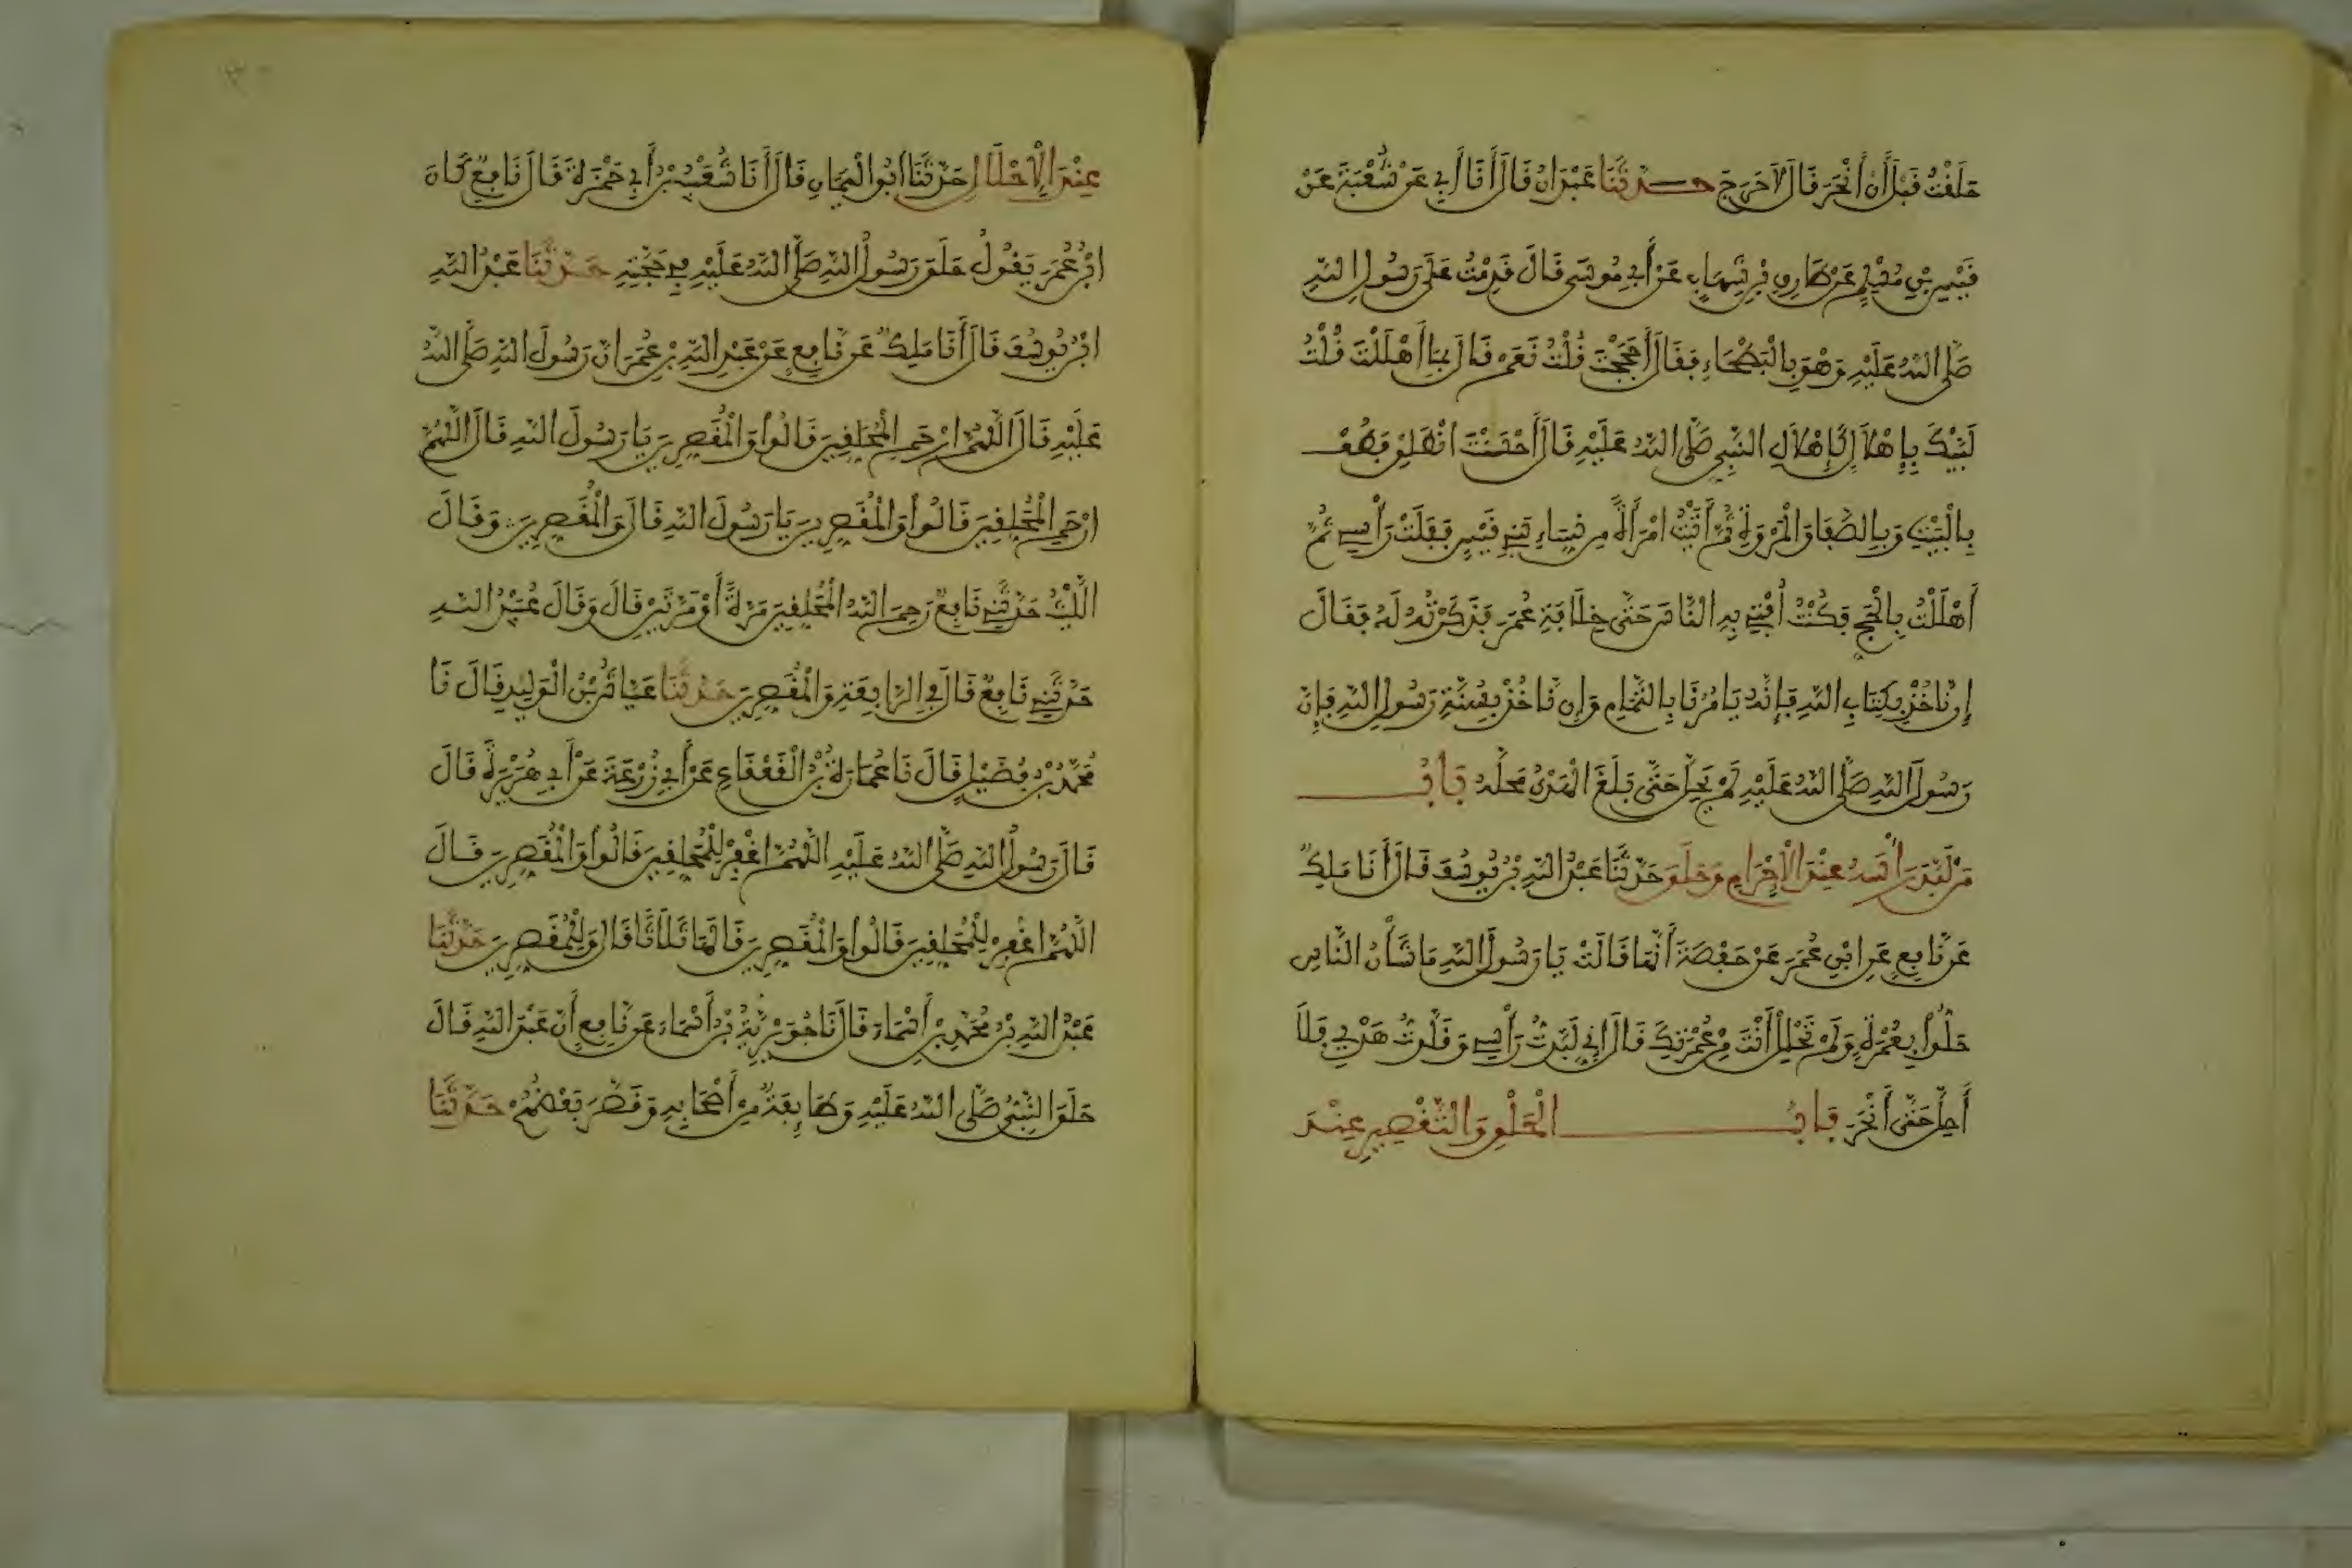 حَلَفْتُ قَبْلَ أَنْ أَنْحَرَ قَالَ لَا حَرَجَ حَدَّثَنَا عَبْدَانُ قَالَ أَنَا أَبِي عَنْ شُعْبَةَ عَنْ
قَيْسِ بْنِ مُسْلِمٍ عَنْ طَارِقِ بْنِ شِهَابٍ عَنْ أَبِي مُوسَى قَالَ قَدِمْتُ عَلَى رَسُولِ اللَّهِ
صَلَّى اللَّهُ عَلَيْهِ وَهْوَ بِالْبَطْحَاءِ فَقَالَ أَحَجَجْتَ قُلْتُ نَعَمْ قَالَ بِمَا أَهْلَلْتَ قُلْتُ
لَبَّيْكَ بِإِهْلَالٍ كَإِهْلَالِ النَّبِيِّ صَلَّى اللَّهُ عَلَيْهِ قَالَ أَحْسَنْتَ انْطَلِقْ فَطُفْ
بِالْبَيْتِ وَبِالصَّفَا وَالْمَرْوَةِ ثُمَّ أَتَيْتُ امْرَأَةً مِنْ نِسَاءِ بَنِي قَيْسٍ فَفَلَتْ رَأْسِي ثُمَّ
أَهْلَلْتُ بِالْحَجِّ فَكُنْتُ أُفْتِي بِهِ النَّاسَ حَتَّى خِلَافَةِ عُمَرَ فَذَكَرْتُهُ لَهُ فَقَالَ
إِنْ نَاخُذْ بِكِتَابِ اللَّهِ فَإِنَّهُ يَامُرُنَا بِالتَّمَامِ وَإِنْ نَاخُذْ بِسُنَّةِ رَسُولِ اللَّهِ فَإِنَّ
رَسُولَ اللَّهِ صَلَّى اللَّهُ عَلَيْهِ لَمْ يَحِلَّ حَتَّى بَلَغَ الْهَدْيُ مَحِلَّهُ بَابُ
مَنْ لَبَّدَ رَأْسَهُ عِنْدَ الْإِحْرَامِ وَحَلَقَ حَدَّثَنَا عَبْدُ اللَّهِ بْنُ يُوسُفَ قَالَ أَنَا مَلِكٌ
عَنْ نَافِعٍ عَنِ ابْنِ عُمَرَ عَنْ حَفْصَةَ أَنَّهَا قَالَتْ يَا رَسُولَ اللَّهِ مَا شَأْنُ النَّاسِ
حَلُّوا بِعُمْرَةٍ وَلَمْ تَحْلِلْ أَنْتَ مِنْ عُمْرَتِكَ قَالَ إِنِّي لَبَّدْتُ رَأْسِي وَقَلَّدْتُ هَدْيِي فَلَا
أَحِلُّ حَتَّى أَنْحَرَ بَابُ الْحَلْقِ وَالتَّقْصِيرِ عِنْدَ
عِنْدَ الْإِحْلَالِ حَدَّثَنَا أَبُو الْيَمَانِ قَالَ أَنَا شُعَيْبُ بْنُ أَبِي حَمْزَةَ قَالَ نَافِعٌ كَانَ
ابْنُ عُمَرَ يَقُولُ حَلَقَ رَسُولُ اللَّهِ صَلَّى اللَّهُ عَلَيْهِ فِي حَجَّتِهِ حَدَّثَنَا عَبْدُ اللَّهِ
ابْنُ يُوسُفَ قَالَ أَنَا مَلِكٌ عَنْ نَافِعٍ عَنْ عَبْدِ اللَّهِ بْنِ عُمَرَ أَنَّ رَسُولَ اللَّهِ صَلَّى اللَّهُ
عَلَيْهِ قَالَ اللَّهُمَّ ارْحَمِ الْمُحَلِّقِينَ قَالُوا وَالْمُقَصِّرِينَ يَا رَسُولَ اللَّهِ قَالَ اللَّهُمَّ
ارْحَمِ الْمُحَلِّقِينَ قَالُوا وَالْمُقَصِّرِينَ يَا رَسُولَ اللَّهِ قَالَ وَالْمُقَصِّرِينَ وَقَالَ
اللَّيْثُ حَدَّثَنِي نَافِعٌ رَحِمَ اللَّهُ الْمُحَلِّقِينَ مَرَّةً أَوْ مَرَّتَيْنِ قَالَ وَقَالَ عُبَيْدُ اللَّهِ
حَدَّثَنِي نَافِعٌ قَالَ فِي الرَّابِعَةِ وَالْمُقَصِّرِينَ حَدَّثَنَا عَيَّاشُ بْنُ الْوَلِيدِ قَالَ نَا
مُحَمَّدُ بْنُ فُضَيْلٍ قَالَ نَا عُمَارَةُ بْنُ الْقَعْقَاعِ عَنْ أَبِي زُرْعَةَ عَنْ أَبِي هُرَيْرَةَ قَالَ
قَالَ رَسُولُ اللَّهِ صَلَّى اللَّهُ عَلَيْهِ اللَّهُمَّ اغْفِرْ لِلْمُحَلِّقِينَ قَالُوا وَالْمُقَصِّرِينَ قَالَ
اللَّهُمَّ اغْفِرْ لِلْمُحَلِّقِينَ قَالُوا وَالْمُقَصِّرِينَ قَالَهَا ثَلَاثًا قَالَ وَلِلْمُقَصِّرِينَ حَدَّثَنَا
عَبْدُ اللَّهِ بْنُ مُحَمَّدِ بْنِ أَسْمَاءَ قَالَ نَا جُوَيْرِيَةُ بْنُ أَسْمَاءَ عَنْ نَافِعٍ أَنَّ عَبْدَ اللَّهِ قَالَ
حَلَقَ النَّبِيُّ صَلَّى اللَّهُ عَلَيْهِ وَطَائِفَةٌ مِنْ أَصْحَابِهِ وَقَصَّرَ بَعْضُهُمْ حَدَّثَنَا